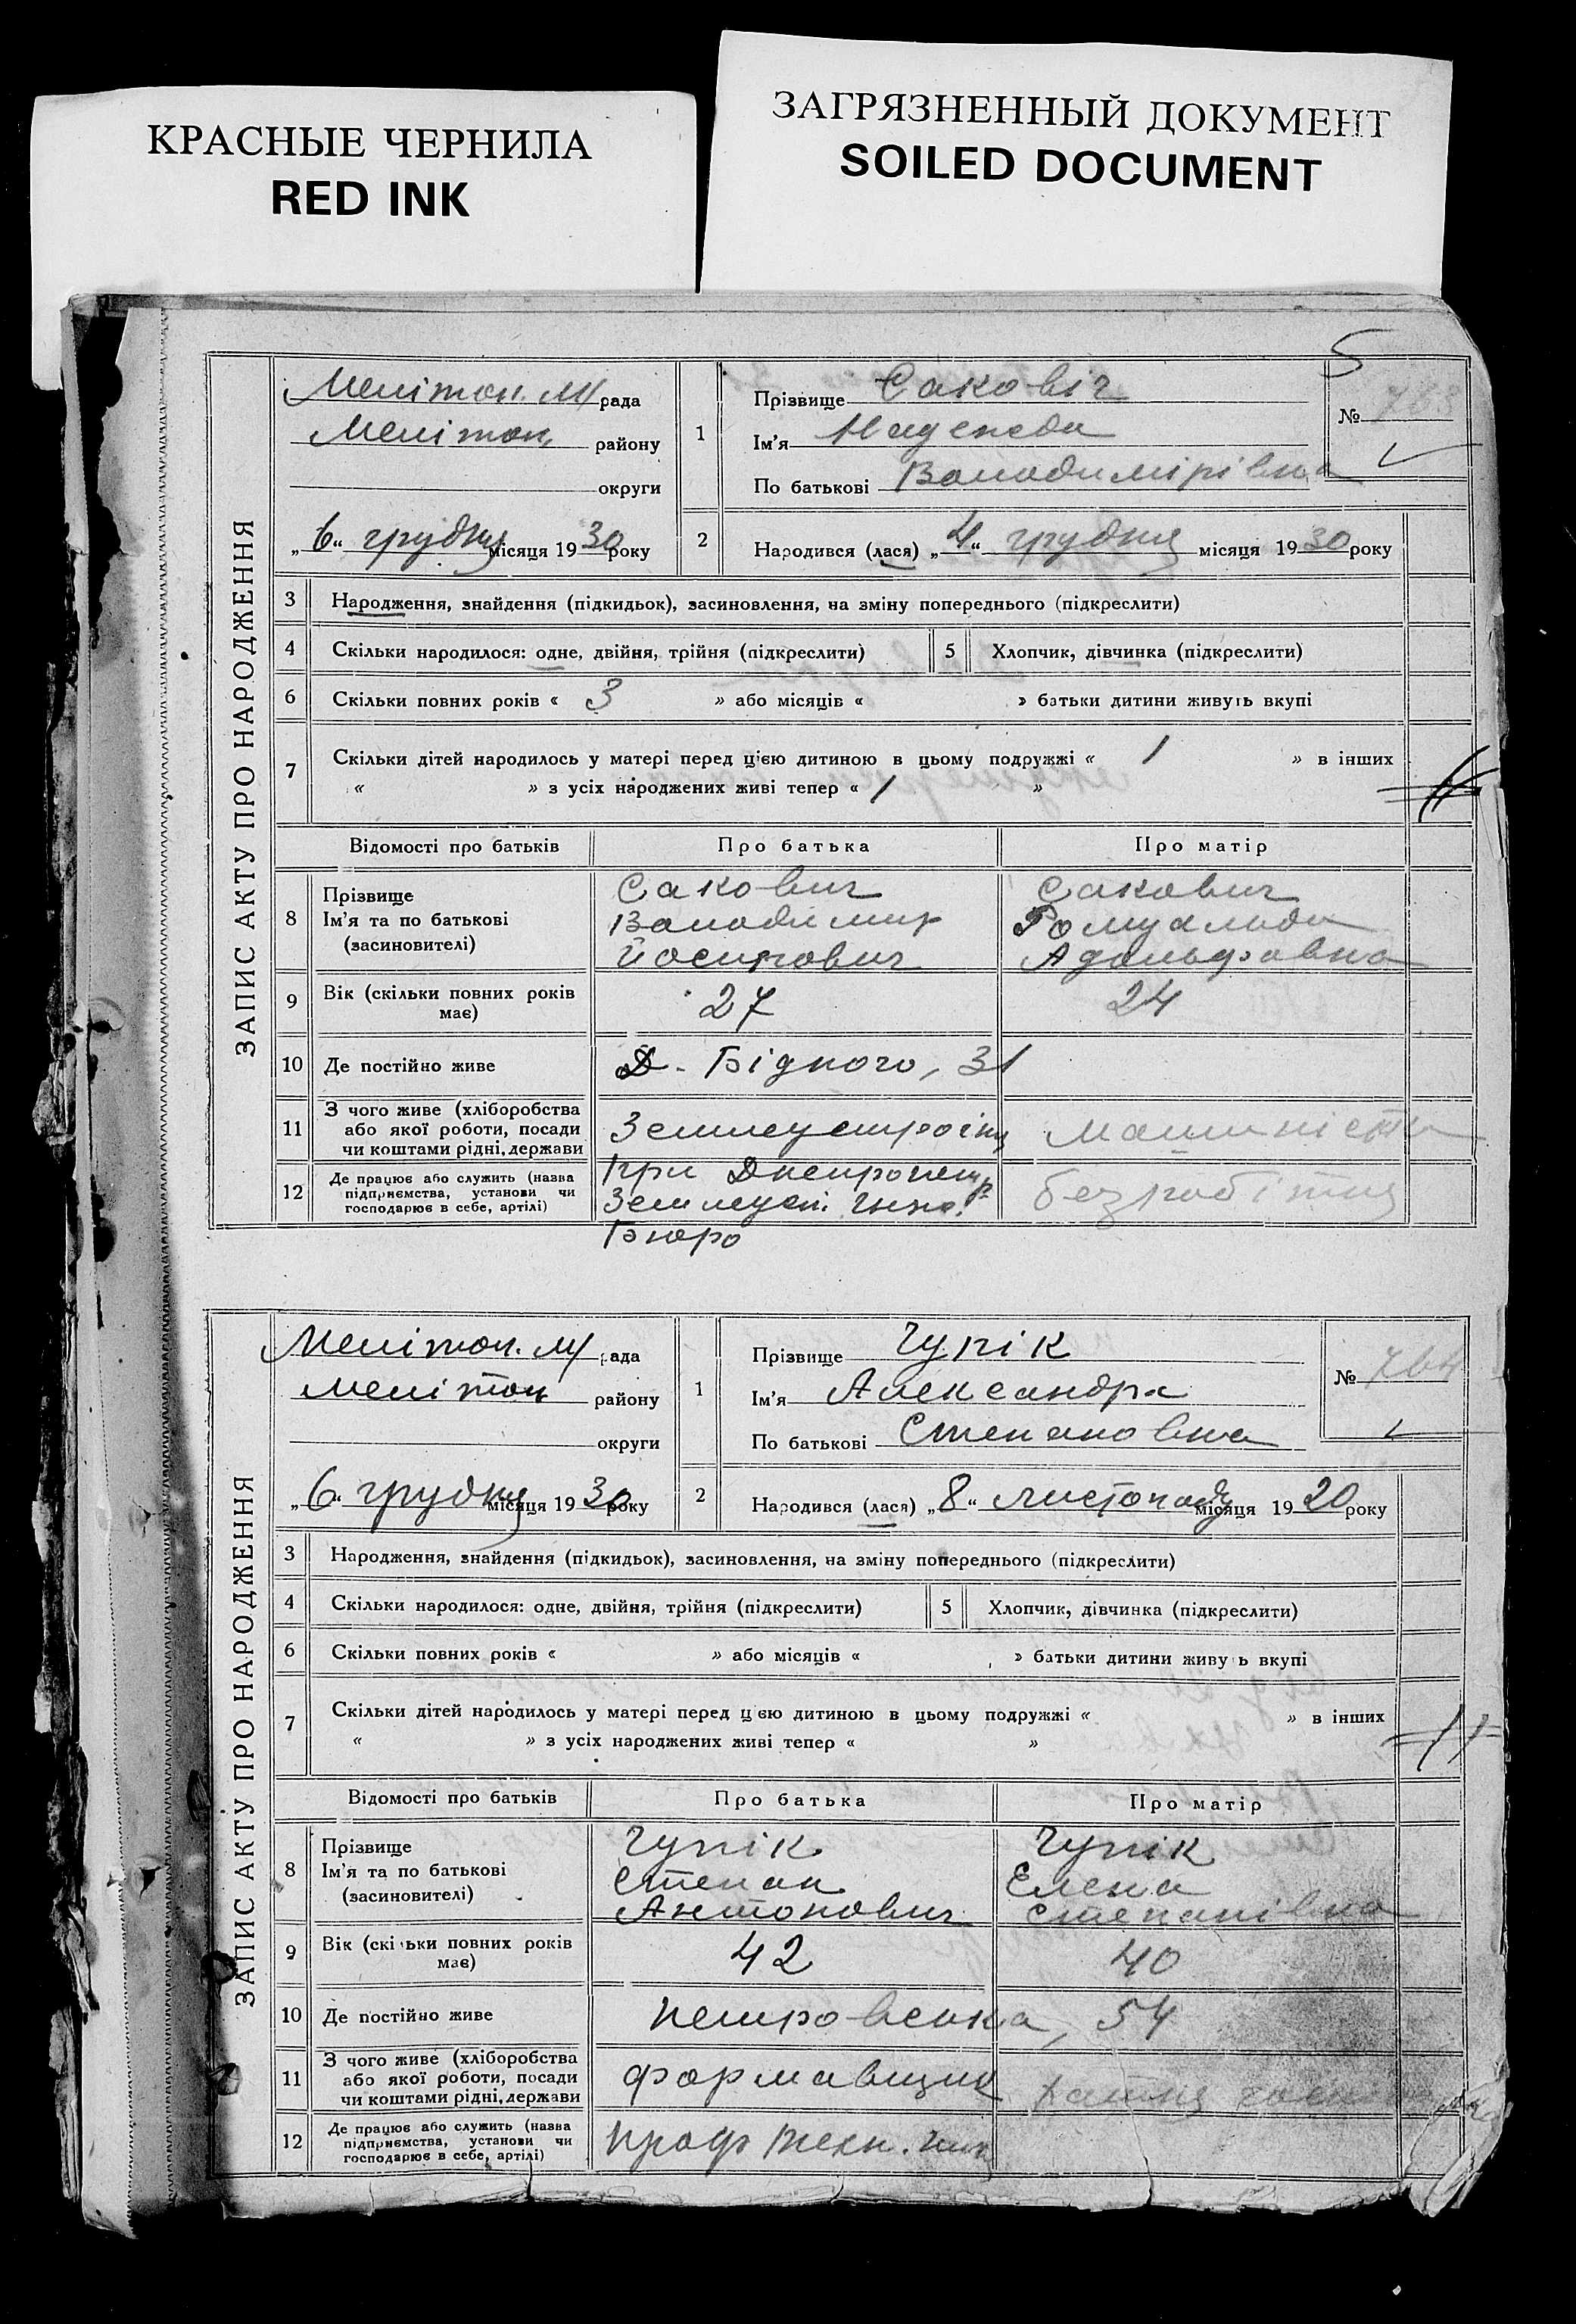 КРАСНЫЕ ЧЕРНИЛА
RED INK
ЗАГРЯЗНЕННЫЙ ДОКУМЕНТ
SOILED DOCUMENT
5
ЗАПИС АКТУ ПРО НАРОДЖЕННЯ
Меліжоп. М/рада
Меліжоп. району
округи
„6“ грудня місяця 1930 року
1
Прізвище Саковіч
Ім'я Надежда
По батькові Володимірівна
№ 763
2
Народився (лася) „4“ грудня місяця 1930 року
3 Народження, знайдення (підкидьок), засиновлення, на зміну попереднього (підкреслити)
4 Скільки народилося: одне, двійня, трійня (підкреслити) 5 Хлопчик, дівчинка (підкреслити)
6 Скільки повних років « 3 » або місяців « » батьки дитини живуть вкупі
7 Скільки дітей народилось у матері перед цією дитиною в цьому подружжі « 1 » в інших
« » з усіх народжених живі тепер « 1 »
Відомості про батьків Про батька Про матір
8 Прізвище Сакович Сакович
Ім'я та по батькові Володимир Ромуальда
(засиновителі) Йосипович Адольфовна
9 Вік (скільки повних років має) 27 24
10 Де постійно живе Д. Бідного, 31
11 З чого живе (хліборобства або якої роботи, посади чи коштами рідні, держави Землеустроїтель машиністка
12 Де працює або служить (назва підприємства, установи чи господарює в себе, артілі) при Днепропетр. Землеуст. Бюро безробітна
ЗАПИС АКТУ ПРО НАРОДЖЕННЯ
Мелітоп. М/рада
Мелітоп району
округи
„6“ грудня місяця 1930 року
1
Прізвище Чупік
Ім'я Александра
По батькові Степановна
№ 764
2
Народився (лася) „8“ листопаду місяця 1920 року
3 Народження, знайдення (підкидьок), засиновлення, на зміну попереднього (підкреслити)
4 Скільки народилося: одне, двійня, трійня (підкреслити) 5 Хлопчик, дівчинка (підкреслити)
6 Скільки повних років « » або місяців « » батьки дитини живуть вкупі
7 Скільки дітей народилось у матері перед цією дитиною в цьому подружжі « » в інших
« » з усіх народжених живі тепер « »
Відомості про батьків Про батька Про матір
8 Прізвище Чупік Чупік
Ім'я та по батькові Степан Елена
(засиновителі) Антонович Степанівна
9 Вік (скільки повних років має) 42 40
10 Де постійно живе Петровська, 54
11 З чого живе (хліборобства або якої роботи, посади чи коштами рідні, держави формавщик хатня
12 Де працює або служить (назва підприємства, установи чи господарює в себе, артілі) Проф техн.